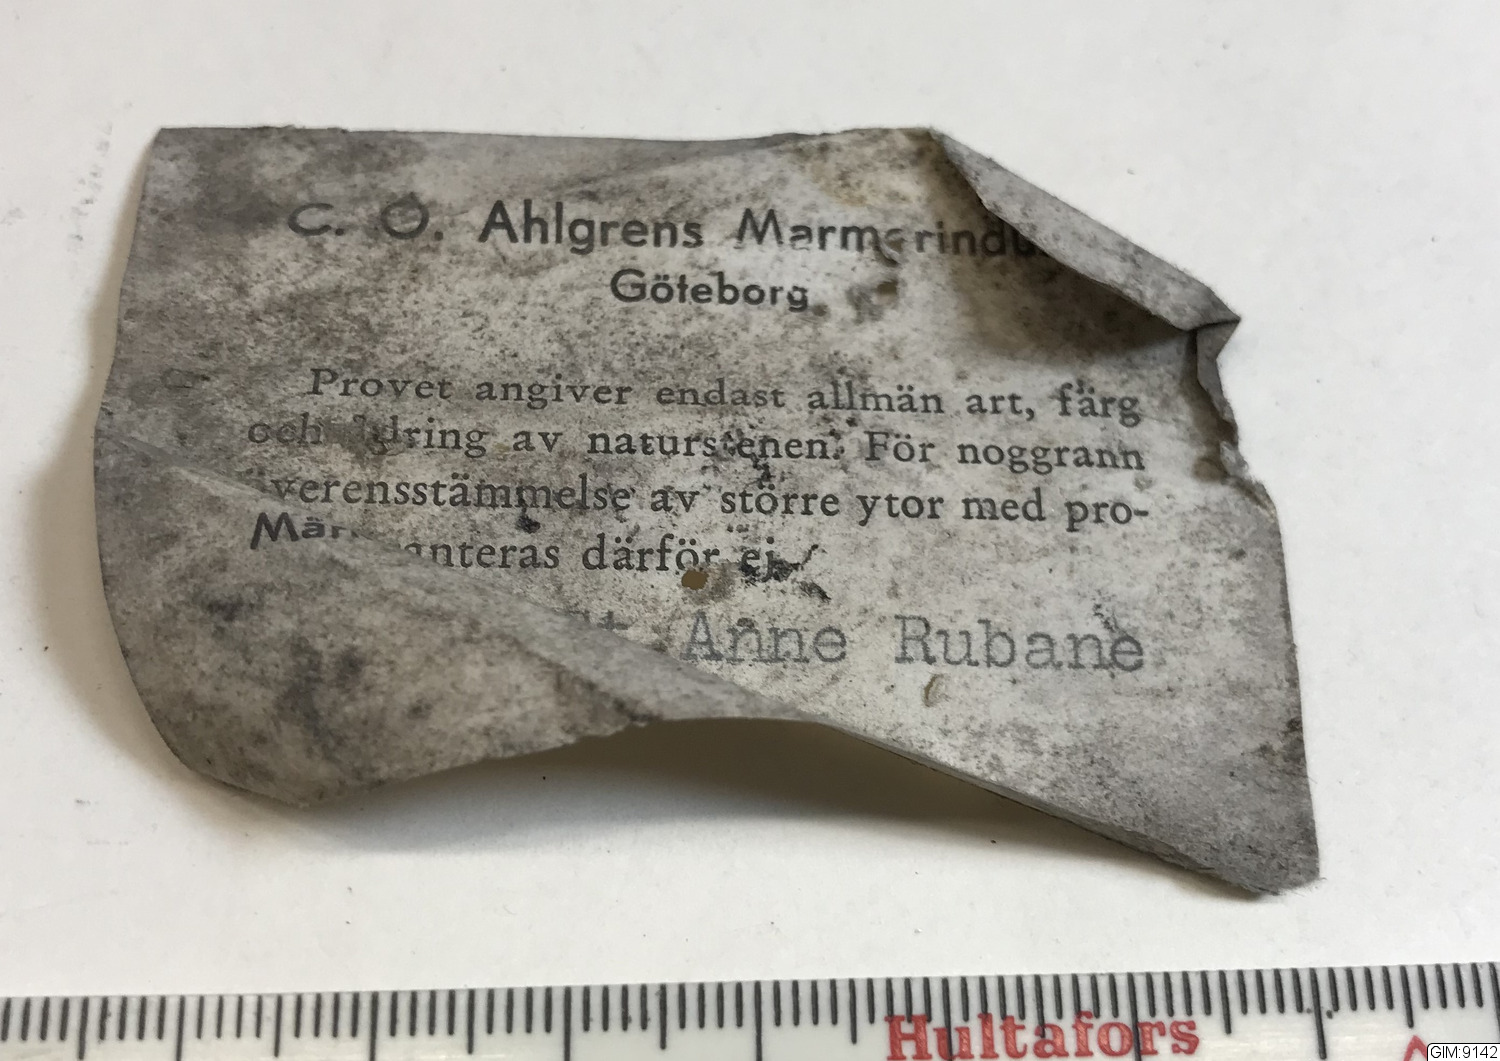 C. O. Ahlgrens Marmorindu
Göteborg
Provet angiver endast allmän art, färg
och ådring av naturstenen. För noggrann
verensstämmelse av större ytor med pro-
anteras därför ej
Mär
St Anne Rubane
Hultafors
GIM:9142